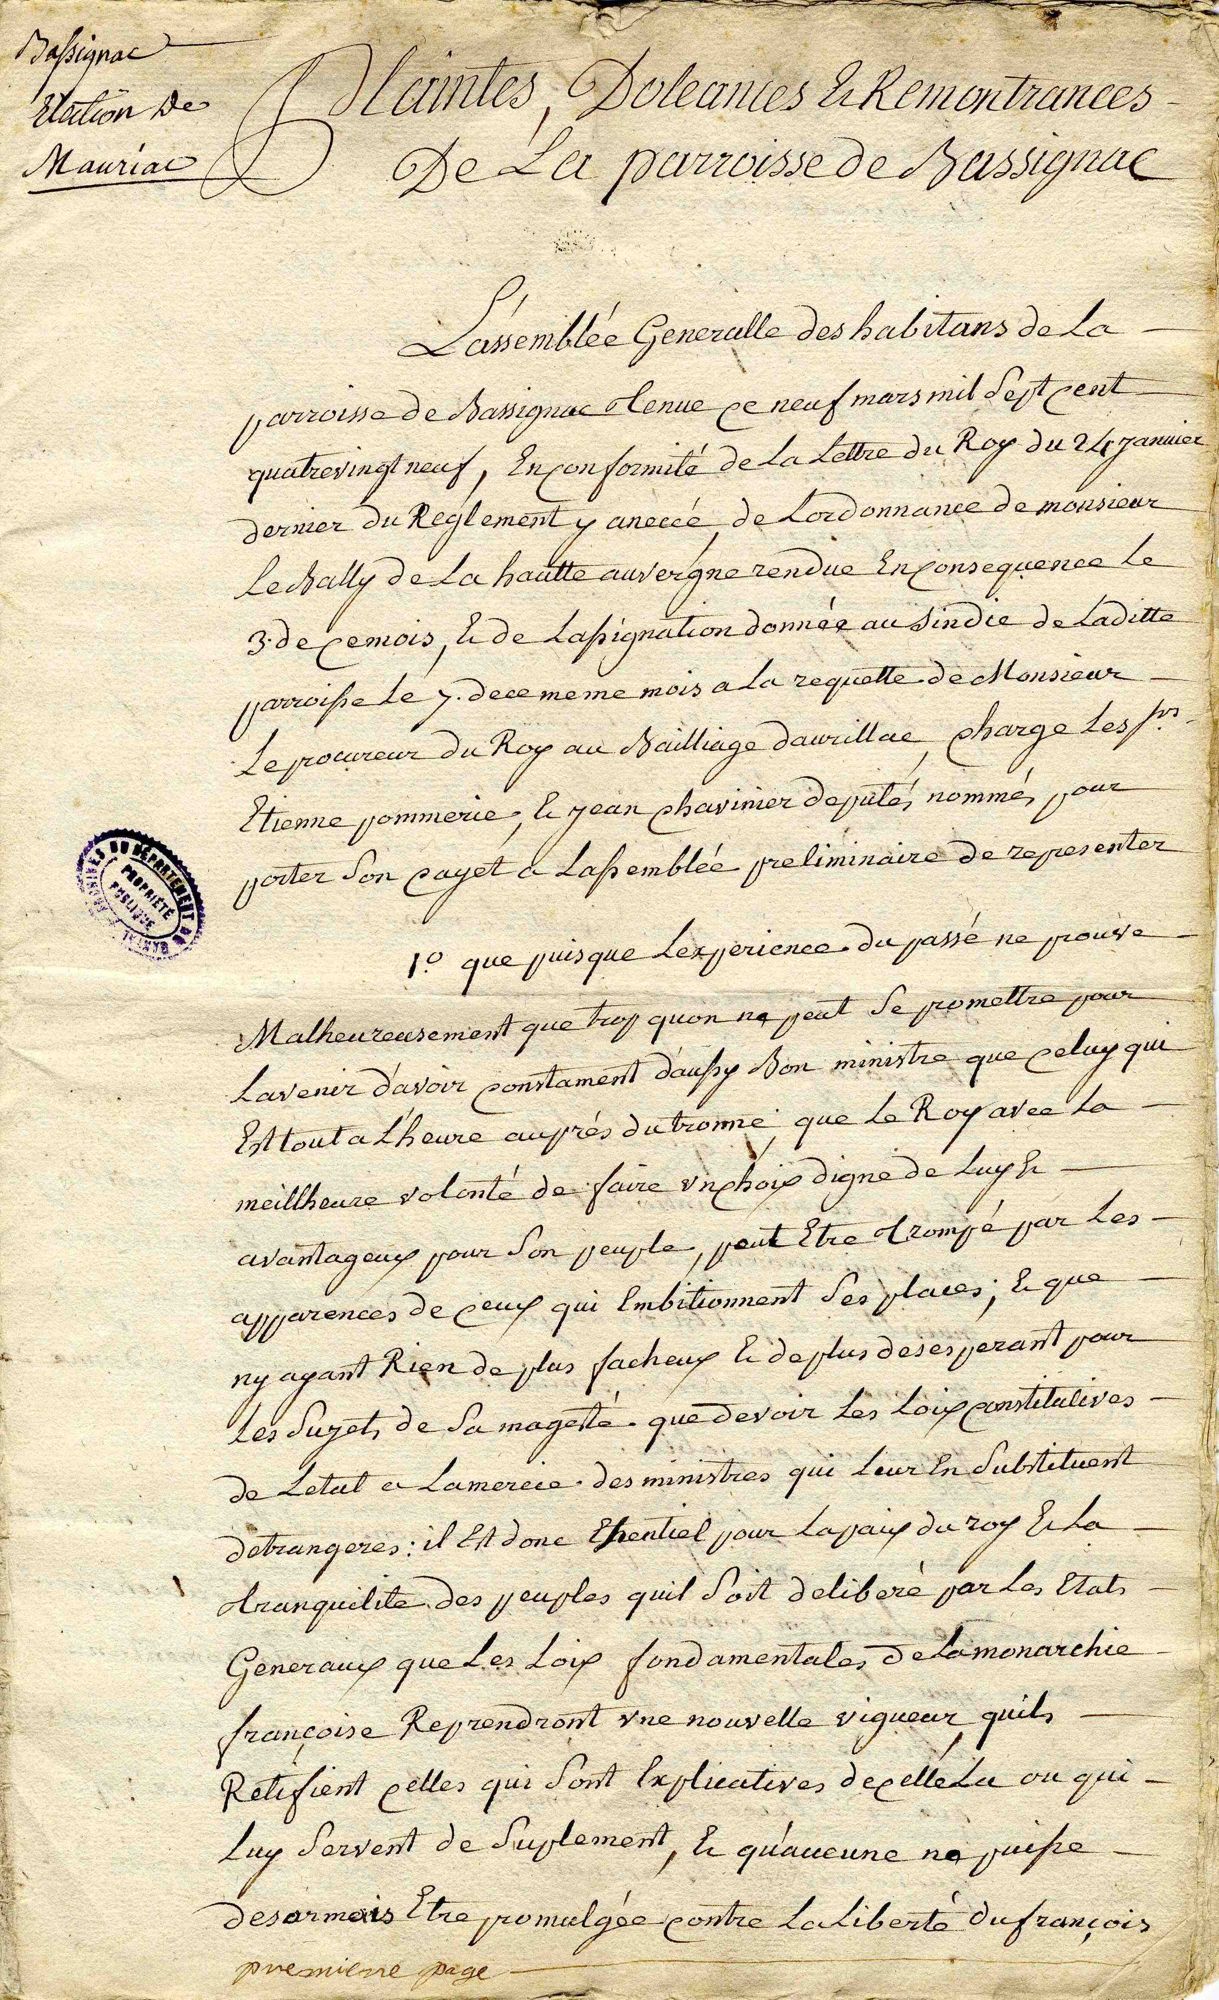 Bassignac
Election De
Mauriac
Plaintes, Doleances & Remontrances
De La parroisse de Bassignac
L'assemblée Generalle des habitans de La
parroisse de Bassignac tenue ce neuf mars mil Sept cent
quatrevingt neuf, En conformité de La Lettre du Roy du 24 janvier
dernier du Réglement y anecce, de Lordonnance de monsieur
Le Bally de La hautte auvergne rendue En consequence Le
3. de ce mois, & de Lassignation donnée au Sindic de Laditte
parroisse Le 7. de ce meme mois a La requette de Monsieur
Le procureur du Roy au Bailliage daurillac, charge Les srs
Etienne pommerie, & jean chavinier deputés nommés pour
porter Son cayét a Lassemblée preliminaire de representer
1.º que puis que Lexperience du passé ne prouve
Malheureusement que trop quon ne peut Se promettre pour
Lavenir d'avoir constament d'aussy Bon ministre que celuy qui
Est tout a L'heure auprés du tronne, que Le Roy avec La
meillheure volonté de faire un choix digne de Luy &
avantageux pour Son peuple, peut Etre trompé par Les
apparences de ceux qui Embitionnent Ses places; & que
ny ayant Rien de plus facheux & de plus desesperant pour
Les Sujets de Sa magesté que de voir Les Loix constitutives
de Letat a Lamercie des ministres qui Leur En Substituent
detrangeres: il Est donc Essentiel pour La paix du roy & La
tranquilite des peuples quil Soit deliberé par Les Etats
Generaux que Les Loix fondamentales de La monarchie
françoise Reprendront une nouvelle vigueur, quils
Retifient celles qui Sont Explicatives de celle La ou qui
Luy Servent de Suplement, & qu'aucune ne puisse
desormais Etre promulgée contre La Liberté du françois
premiere page
ARCHIVES DU DÉPARTEMENT DU CANTAL
PROPRIÉTÉ
PUBLIQUE